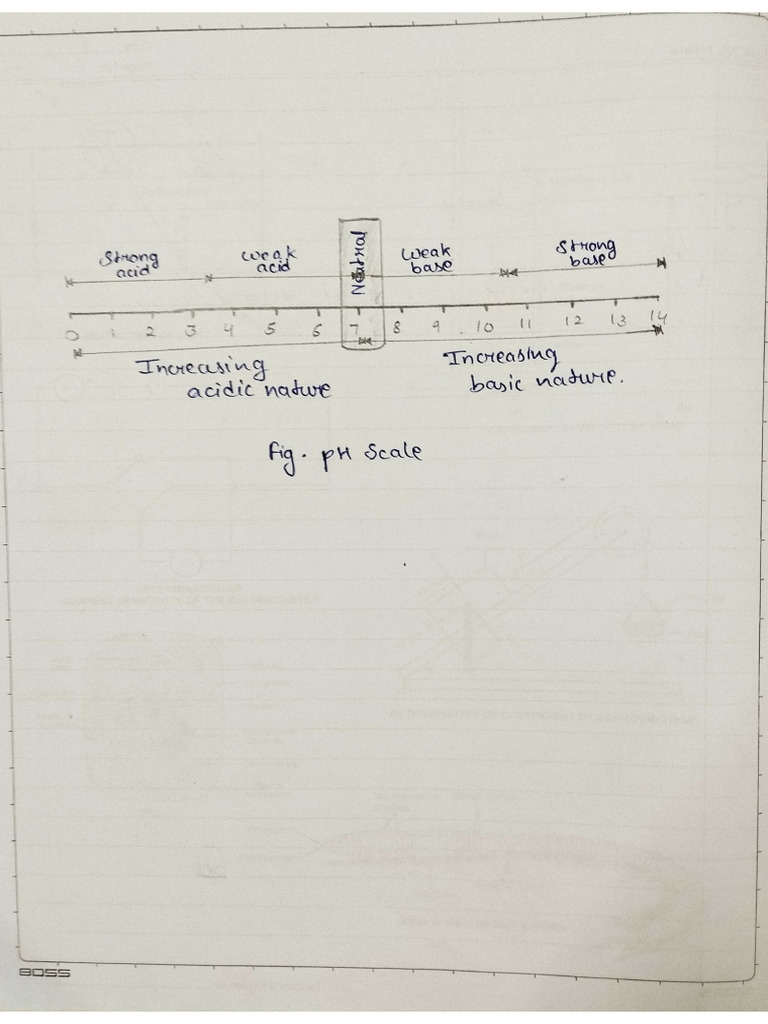 Strong
acid
weak
acid
Neutral
Weak
base
Strong
base
0 1 2 3 4 5 6 7 8 9 10 11 12 13 14
Increasing
acidic nature
Increasing
basic nature.
Fig. pH Scale
BOSS